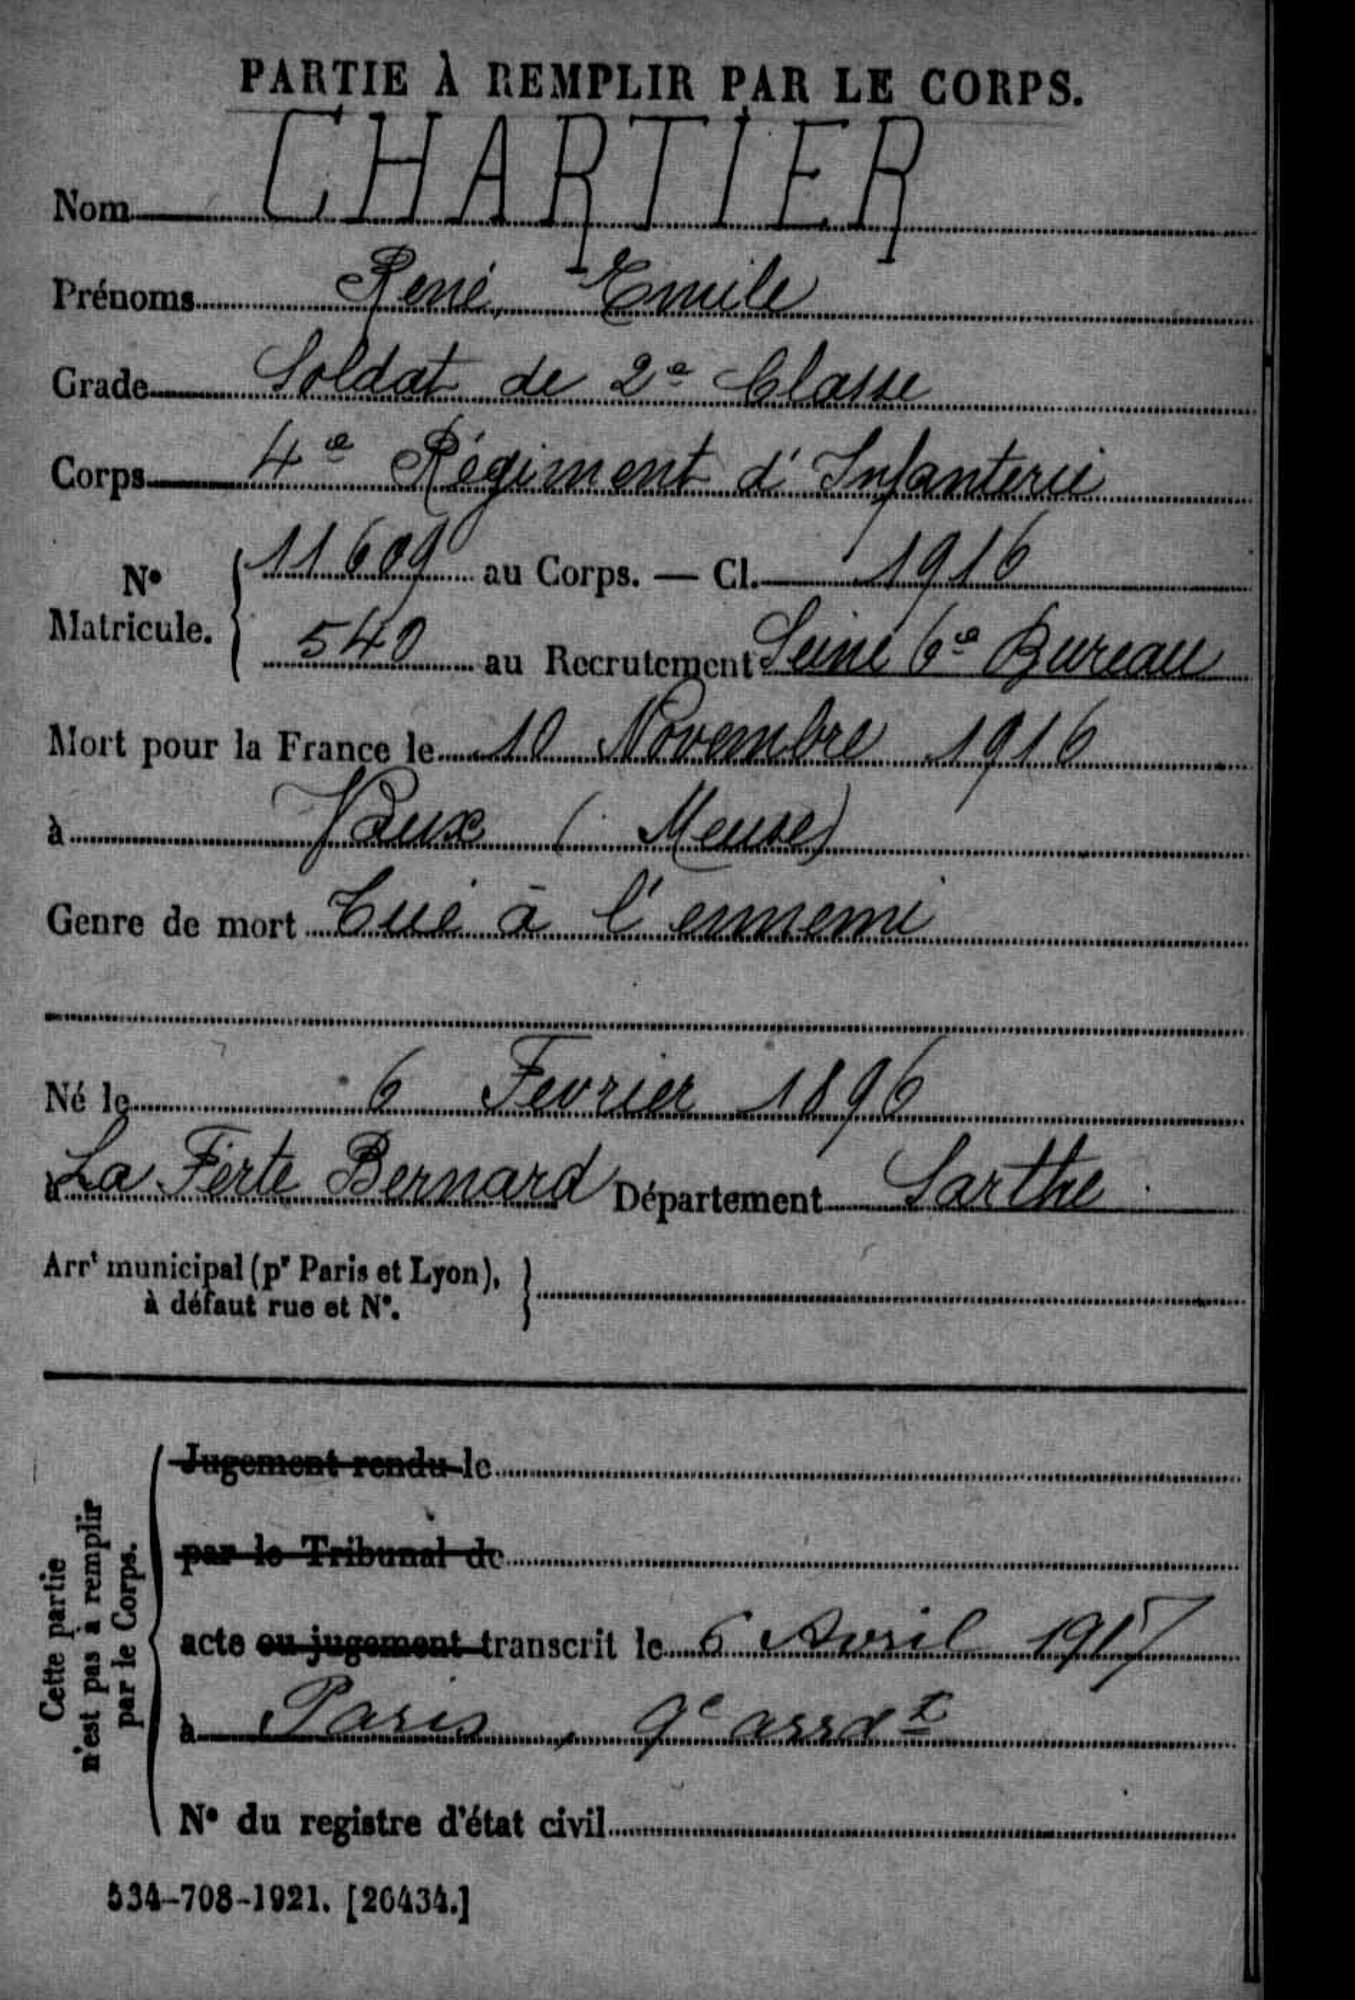 PARTIE À REMPLIR PAR LE CORPS.
Nom CHARTIER
Prénoms René, Emile
Grade Soldat de 2e Classe
Corps 4e Régiment d'Infanterie
N° Matricule. { 11609 au Corps. — Cl. 1916
540 au Recrutement Seine 6e Bureau
Mort pour la France le 10 Novembre 1916
à Vaux (Meuse)
Genre de mort Tué à l'ennemi
Né le 6 Fevrier 1896
à La Ferte Bernard Département Sarthe
Arrt municipal (pr Paris et Lyon), }
à défaut rue et N°.
Cette partie
n'est pas à remplir
par le Corps.
Jugement rendu le
par le Tribunal de
acte ou jugement transcrit le 6 Avril 1917
à Paris, 9e arrdt
N° du registre d'état civil
534-708-1921. [26434.]